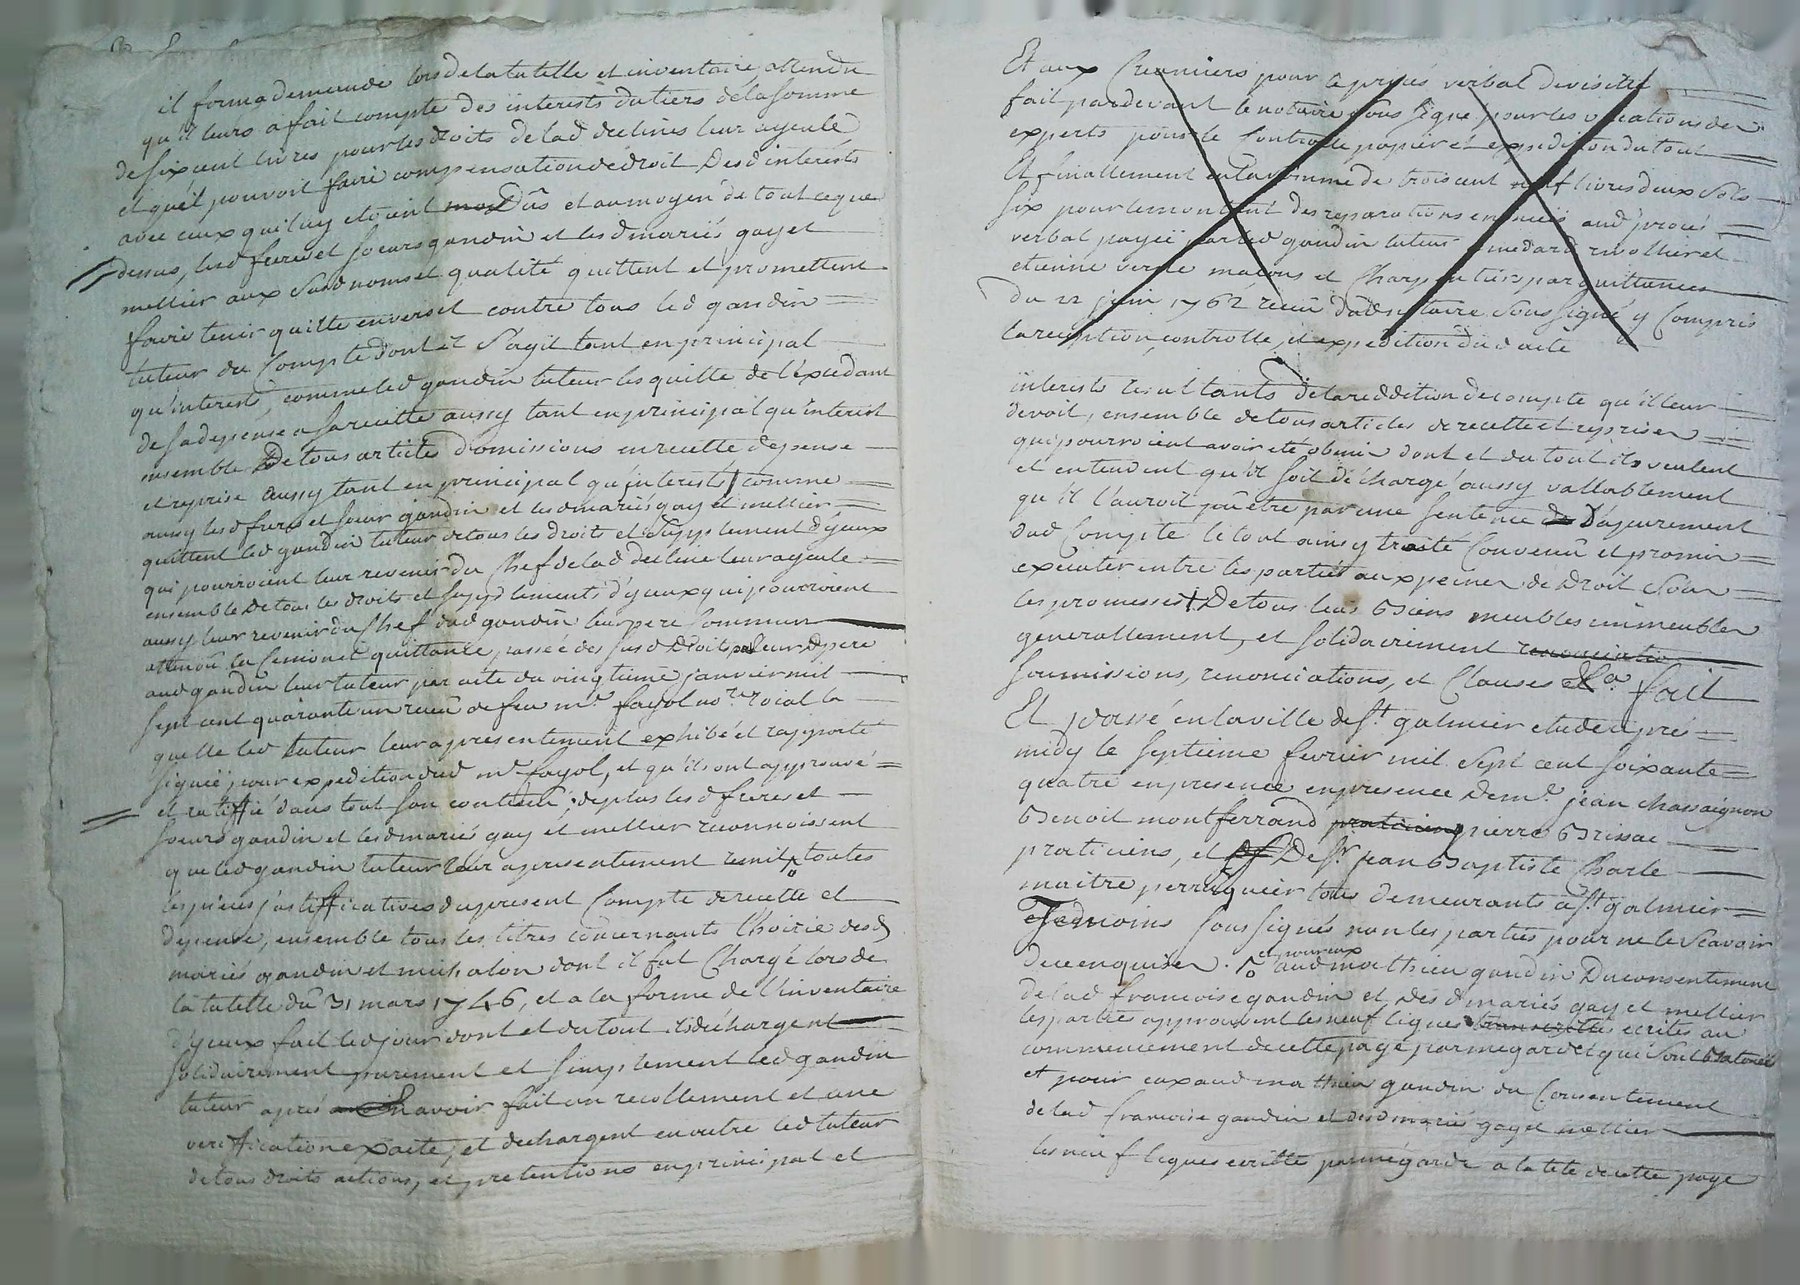 il forma demande lors de la tutelle et inventaire attendu
qu'il leurs a fait compte des interests du tiers de la somme
de six cent livres pour les droits de lad decline leur ayeule
et qu'il pouvoit faire compensation de droit desd interests
avec ceux qui luy etoient dûs et au moyen de tout ce que
dessus, lesd freres et soeurs gandin et lesd mariés gay et
mellier aux susd noms et qualité quittent et promettent
faire tenir quitte envers et contre tous led gandin
tuteur du compte dont il s'agit tant en principal
qu'interests, comme led gandin tuteur les quitte de l'excedant
de sa depense a sa recette aussy tant en principal qu'interest
ensemble de tous articles d'omissions en recette depense
et reprise aussy tant en principal qu'interests comme
aussy lesd freres et soeur gandin et lesd mariés gay et mellier
quittent led gandin tuteur de tous les droits et suplement d'yceux
qui pourroient leur revenir du chef de lad decline leur ayeule
ensemble de tous les droits et supplements d'yceux qui pourroient
aussy leur revenir du chef dud gandin leur pere commun
attendû la cession et quittance passée des susd droits leurd pere
aud gandin leur tuteur par acte du vingtieme janvier mil
sept cent quarante un recu de feu me fayol nore roial la
quelle led tuteur leur a presentement exhibé et rapporté
signée pour expedition dud me fayol, et qu'ils ont approuvé
et ratiffié dans tout son contenu; de plus lesd freres et
soeurs gandin et lesd mariés gay et mellier reconnoissent
que led gandin tuteur leur a presentement remit toutes
les pieces justifficatives du present compte de recette et
depense, ensemble tous les titres concernants l'hoirie desd
mariés gandin et michalon dont il fut chargé lors de
la tutelle du 31 mars 1746, et a la forme de l'inventaire
d'yceux fait led jour dont et du tout ils dechargent
solidairement purement et simplement led gandin
tuteur aprés avoir fait un recollement et une
veriffication exacte, et dechargent en outre led tuteur
de tous droits actions, et pretentions en principal et
Et aux Creanciers pour le procés verbal de visitte
fait pardevant le notaire sous signé pour les vacations des
experts pour le controlle papier et expedition du tout
Et finallement en la somme de trois cent neuf livres deux sols
six pour le montant des reparations enoncées aud procés
verbal payée par led gandin tuteur a medard rivollier et
etienne verne maçons et charpentiers par quittances
du 22 juin 1762 recue dud notaire sous signé y compris
la reception, controlle, et expedition dud acte
interests resultants de la reddition de compte qu'il leur
devoit, ensemble de tous articles de recette et reprises
qui pourroient avoir eté obmis dont et du tout ils veulent
et entendent qu'il soit déchargé aussy vallablement
qu'il l'auroit pû etre par une sentence d'apurement
dud compte le tout ainsy traité convenû et promis
executer entre les parties aux peines de droit sous
les promesses de tous leurs biens meubles immeubles
generallement, et solidairement renonciation
soumissions, renonciations, et clauses & a fait
Et passé en la ville de st galmier etude après
midy le septieme fevrier mil sept cent soixante
quatre en presence en presence de me jean chassaignon
Benoit montferrand praticiens pierre Brissac
praticiens, et de sr jean Baptiste Charle
maitre perruquier tous demeurants a st galmier
Tesmoins sous signés non les parties pour ne le scavoir
de ce enquises. et nouveaux aud mathieu gandin du consentement
de lad francoise gandin et desd mariés gay et mellier
les parties approuvent les neuf lignes transcrittes ecrites au
commencement de cette page par megarde et qui sont Batonées
et pour eux aud mathieu gandin du consentement
de lad francoise gandin et desd mariés gay et mellier
les neuf lignes ecritte par mégarde a la tete de cette page